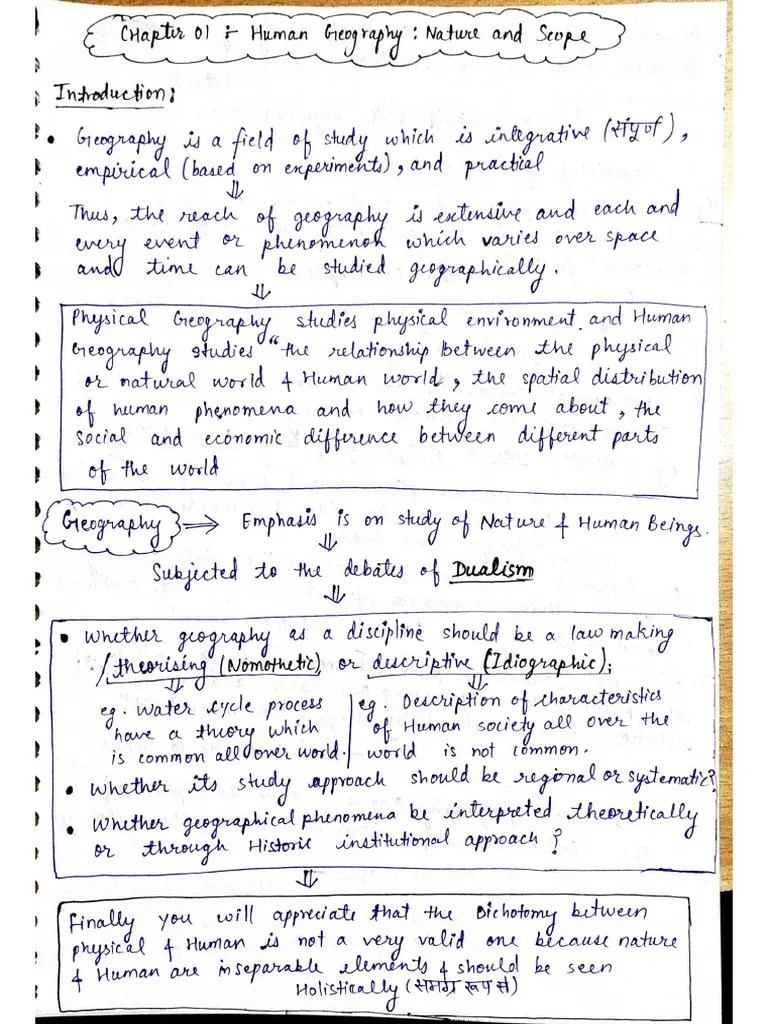 Chapter 01 :- Human Geography : Nature and Scope
Introduction :
• Geography is a field of study which is integrative (संपूर्ण),
empirical (based on experiments), and practical
⇓
Thus, the reach of geography is extensive and each and
every event or phenomenon which varies over space
and time can be studied geographically.
⇓
Physical Geography studies physical environment and Human
Geography studies "the relationship between the physical
or natural world & Human world, the spatial distribution
of human phenomena and how they come about, the
social and economic difference between different parts
of the world
Geography ⇒ Emphasis is on study of Nature & Human Beings.
⇓
Subjected to the debates of Dualism
⇓
• Whether geography as a discipline should be a law making
/theorising (Nomothetic), or descriptive (Idiographic);
⇓ ⇓
eg. Water cycle process
have a theory which
is common all over world.
eg. Description of characteristics
of Human society all over the
world is not common.
• Whether its study approach should be regional or systematic?
• Whether geographical phenomena be interpreted theoretically
or through Historic institutional approach ?
⇓
Finally you will appreciate that the Dichotomy between
physical & Human is not a very valid one because nature
& Human are inseparable elements & should be seen
Holistically (समग्र रूप से)